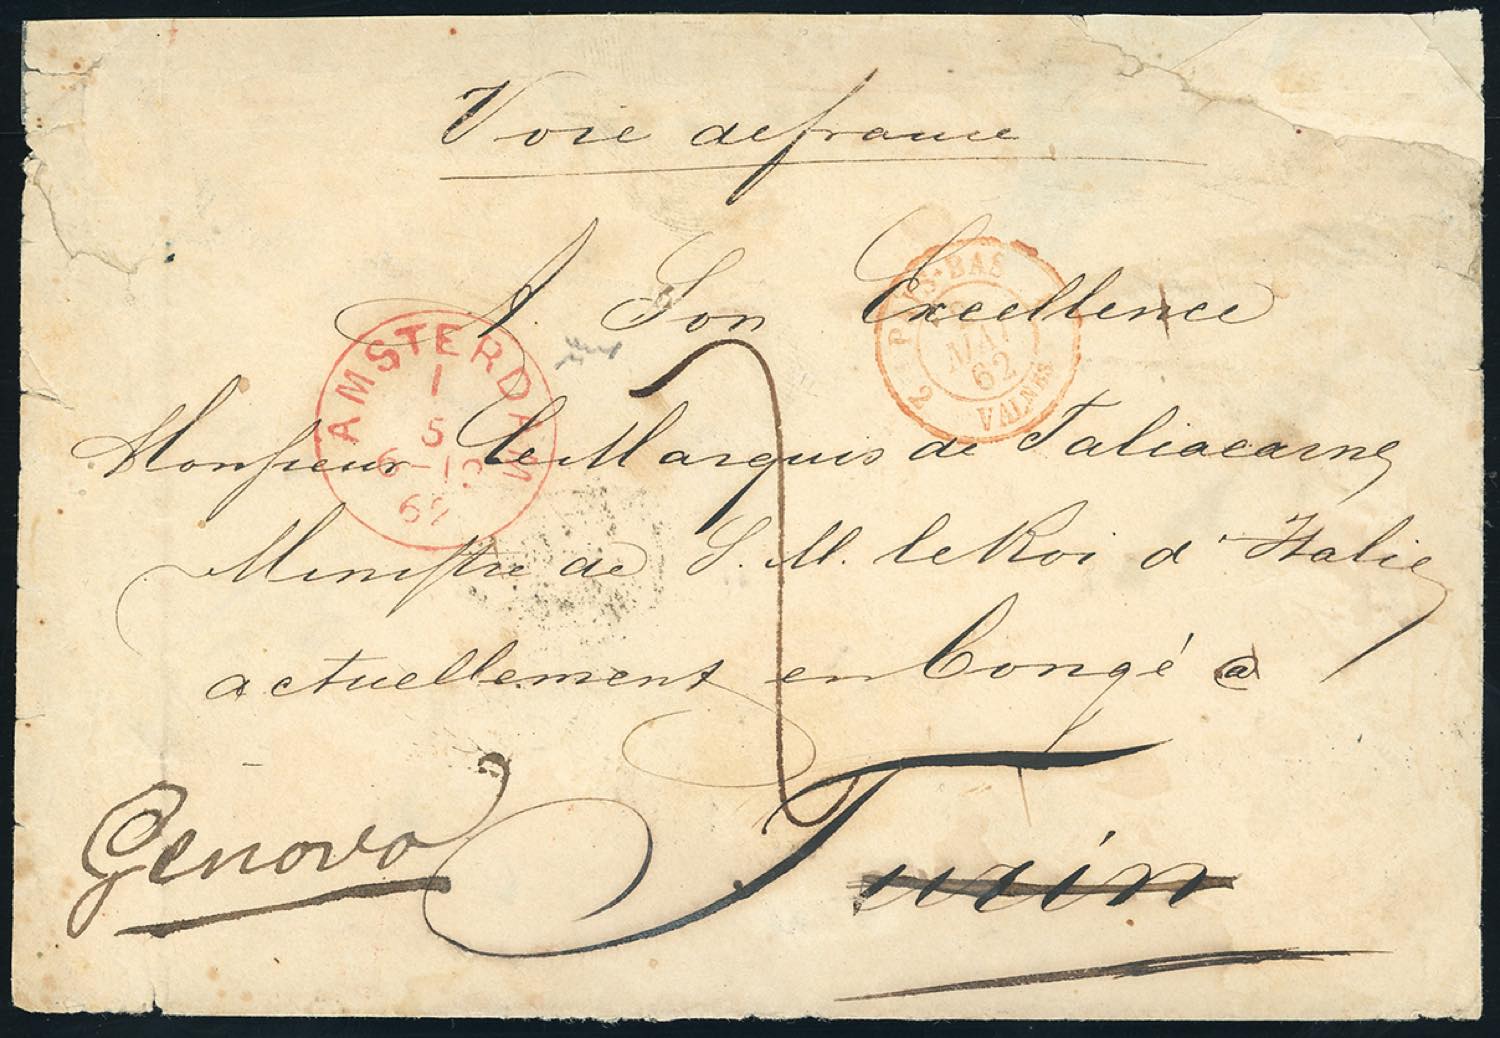 Voie de france
A Son Excellence
Monsieur le Marquis de Taliacarne
Ministre de S. M. le Roi d'Italie
actuellement en Congé a
Turin
Genova
AMSTERDAM
1
5
6-12
62
PAYS-BAS
MAI
62
2 VALNES 2